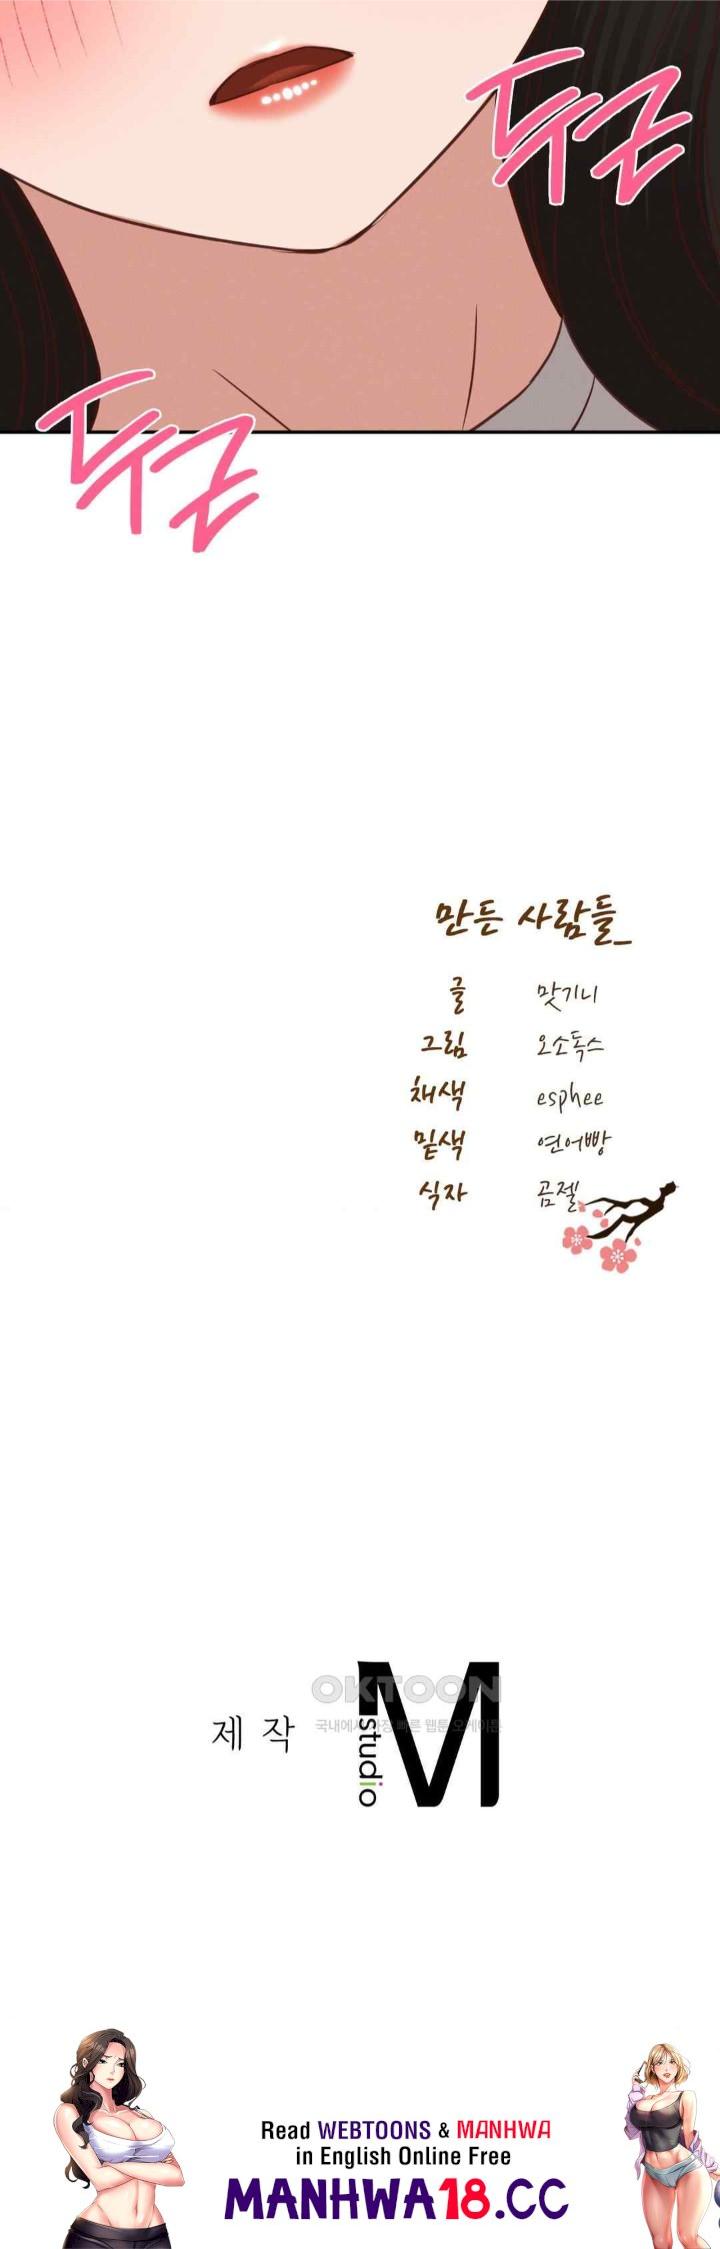 두근
두근
만든 사람들_
글 맛기니
그림 오소독스
채색 esphee
밑색 연어빵
식자 곰젤
OKTOON
국내에서 가장 빠른 웹툰 오케이툰
제작
M studio
Read WEBTOONS & MANHWA
in English Online Free
MANHWA18.CC